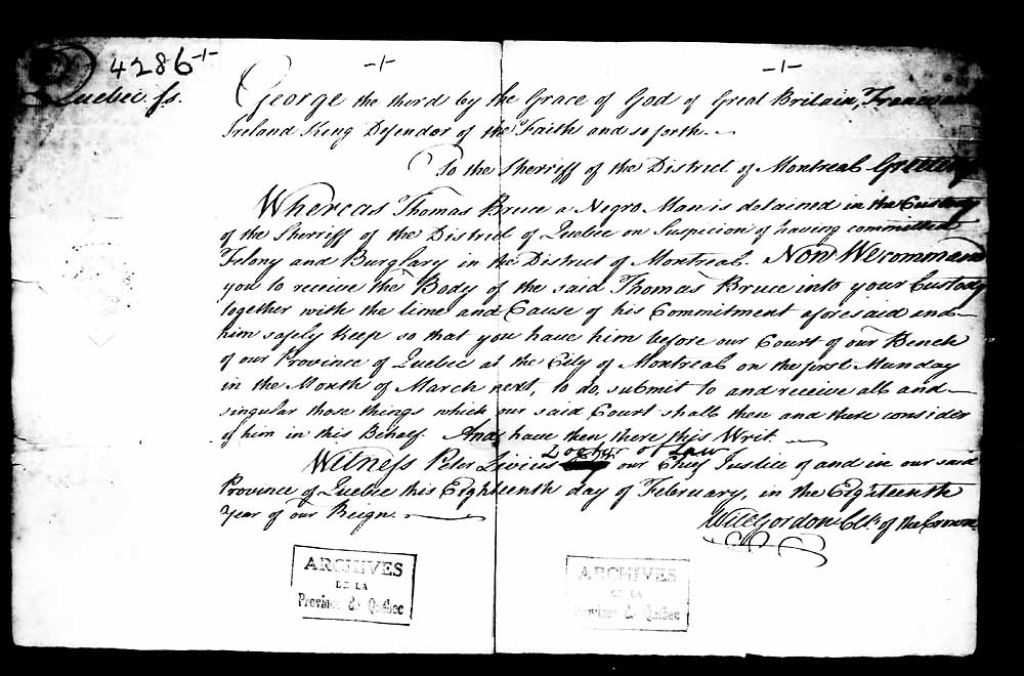 4286-1-
-1-
-1-
Quebec ss.
George the third by the Grace of God of Great Britain, France and
Ireland King Defendor of the Faith and so forth.
To the Sherriff of the District of Montreal Greeting
Whereas Thomas Bruce a Negro Man is detained in the Custody
of the Sherriff of the District of Quebec on Suspicion of having committed
Felony and Burglary in the District of Montreal. Now We command
you to receive the Body of the said Thomas Bruce into your Custody
together with the time and Cause of his Commitment aforesaid and
him safely keep so that you have him before our Court of our Bench
of our Province of Quebec at the City of Montreal on the first Munday
in the Month of March next, to do, submit to and receive all and
singular those things which our said Court shall then and there consider
of him in this Behalf. And have then there this Writ.
Doctor of Law
Witness Peter Livius our Chief Justice of and in our said
Province of Quebec this Eighteenth day of February, in the Eighteenth
Year of our Reign.
Will Gordon Clk. of the Crown
ARCHIVES
DE LA
Province de Québec
ARCHIVES
DE LA
Province de Québec